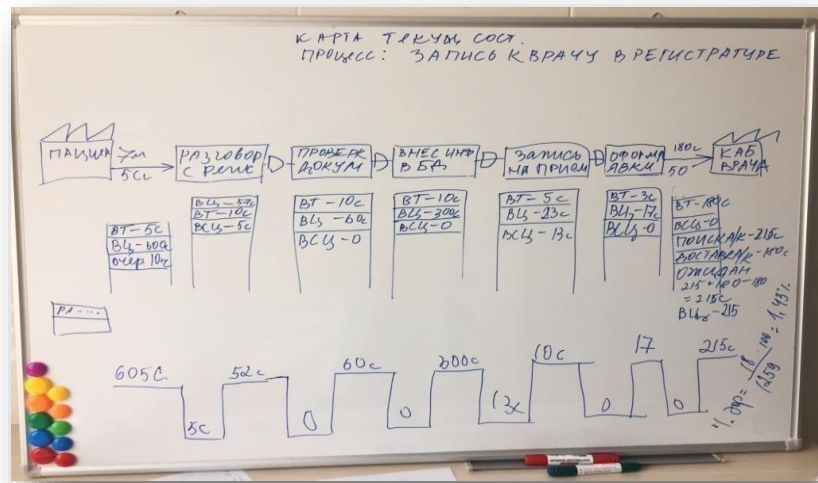 КАРТА ТЕКУЩ СОСТ.
ПРОЦЕСС: ЗАПИСЬ К ВРАЧУ В РЕГИСТРАТУРЕ
ПАЦИЕН
7м
5с
РАЗГОВОР
С РЕГИС
ПРОВЕРК
ДОКУМ
ВНЕС ИНФ
В БД
ЗАПИСЬ
НА ПРИЕМ
ОФОРМЛ
180с
50
КАБ
ВРАЧА
ВТ-5с
ВЦ-600
ОЧЕР 10ч
ВЦ-52с
ВТ-10с
ВСЦ-5с
ВТ-10с
ВЦ-60с
ВСЦ-0
ВТ-10с
ВЦ-300с
ВСЦ-0
ВТ-5с
ВЦ-23с
ВСЦ-13с
ВТ-3с
ВЦ-17с
ВСЦ-0
ВТ-180с
ВСЦ-0
ПОИСК А/К-215с
ДОСТАВКА/К-180с
ОЖИДАН
215+180-180
=215с
605с.
5с
52с
0
60с
0
300с
13с
10с
0
17
0
215с
18
1259
100
= 1,43%